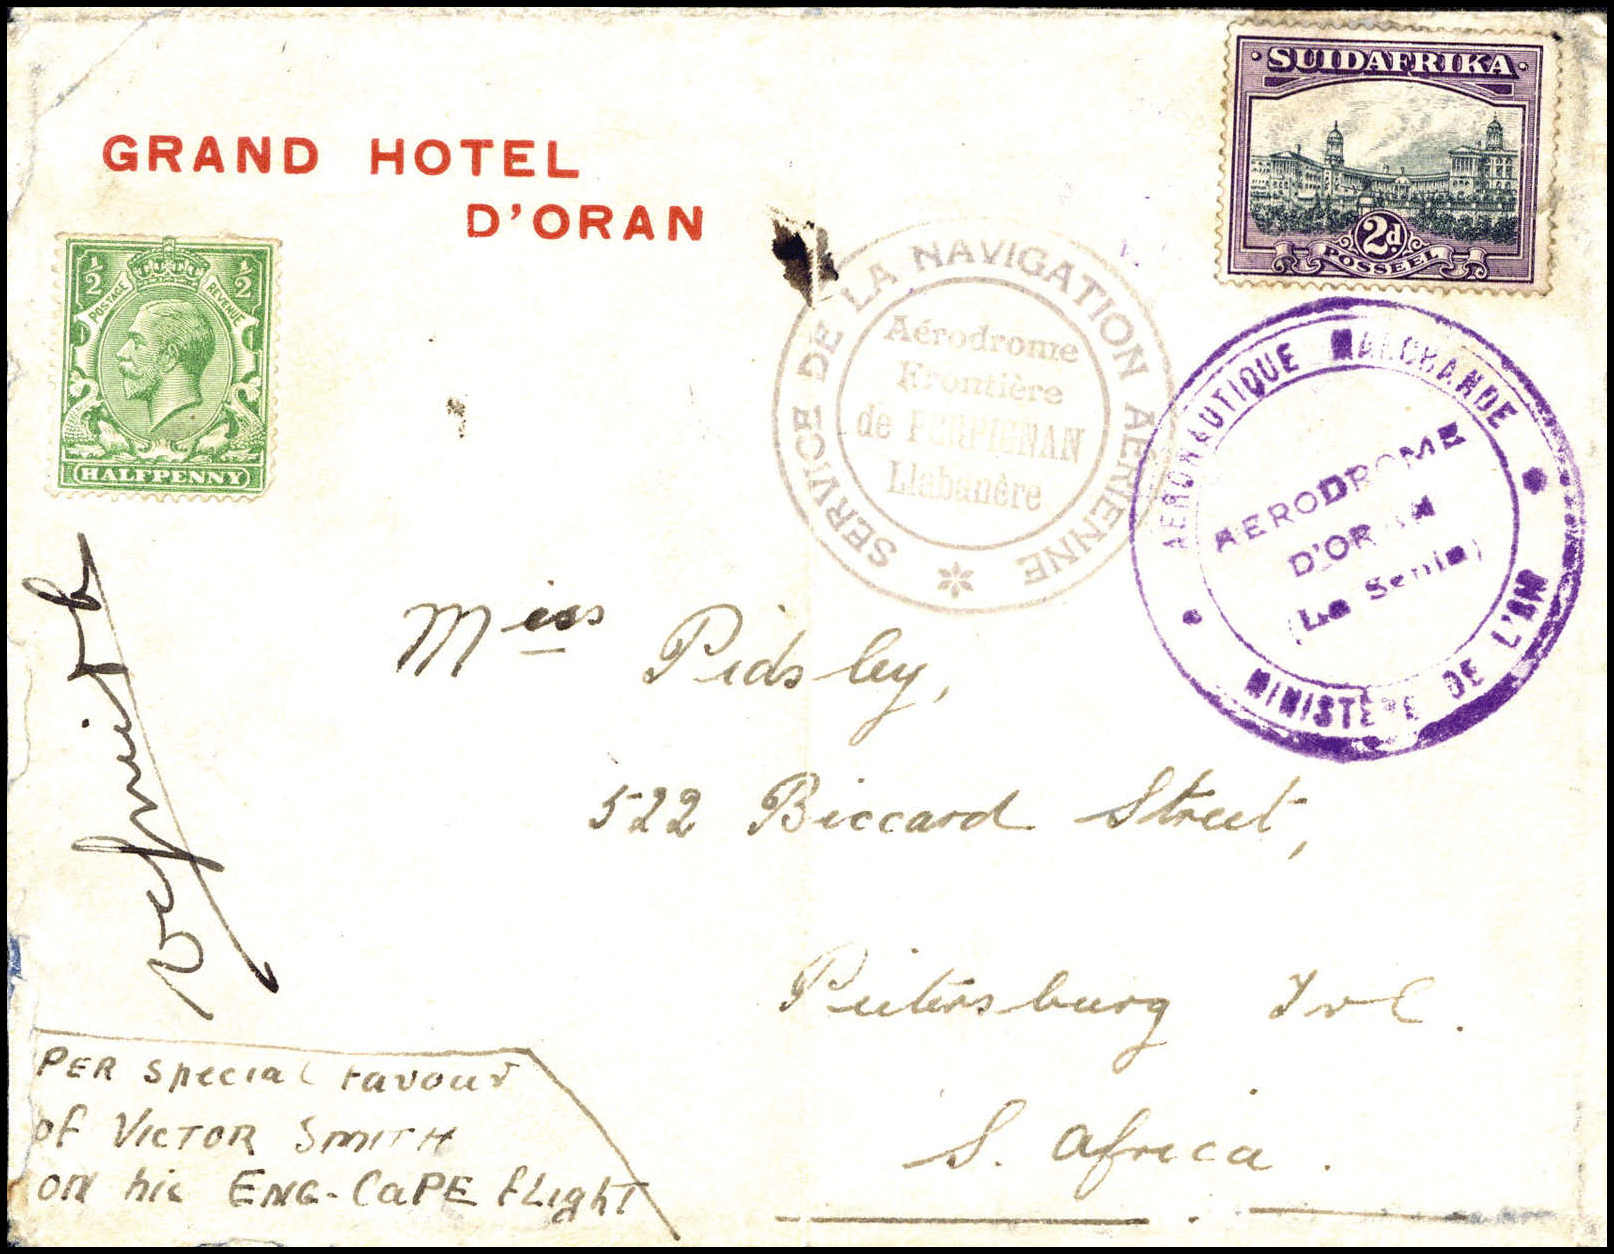 SUIDAFRIKA
2d.
POSSEËL
GRAND HOTEL
D'ORAN
½ ½
POSTAGE REVENUE
HALFPENNY
SERVICE DE LA NAVIGATION AÉRIENNE
Aérodrome
Frontière
de PERPIGNAN
Llabanère
AÉRONAUTIQUE MARCHANDE
AERODROME
D'ORAN
(La Senia)
MINISTÈRE DE L'AIR
Miss Pidsley,
522 Biccard Street,
Pietersburg Tvl.
S. Africa.
VSmith
PER special favour
of VICTOR SMITH
on his ENG-CaPE flight